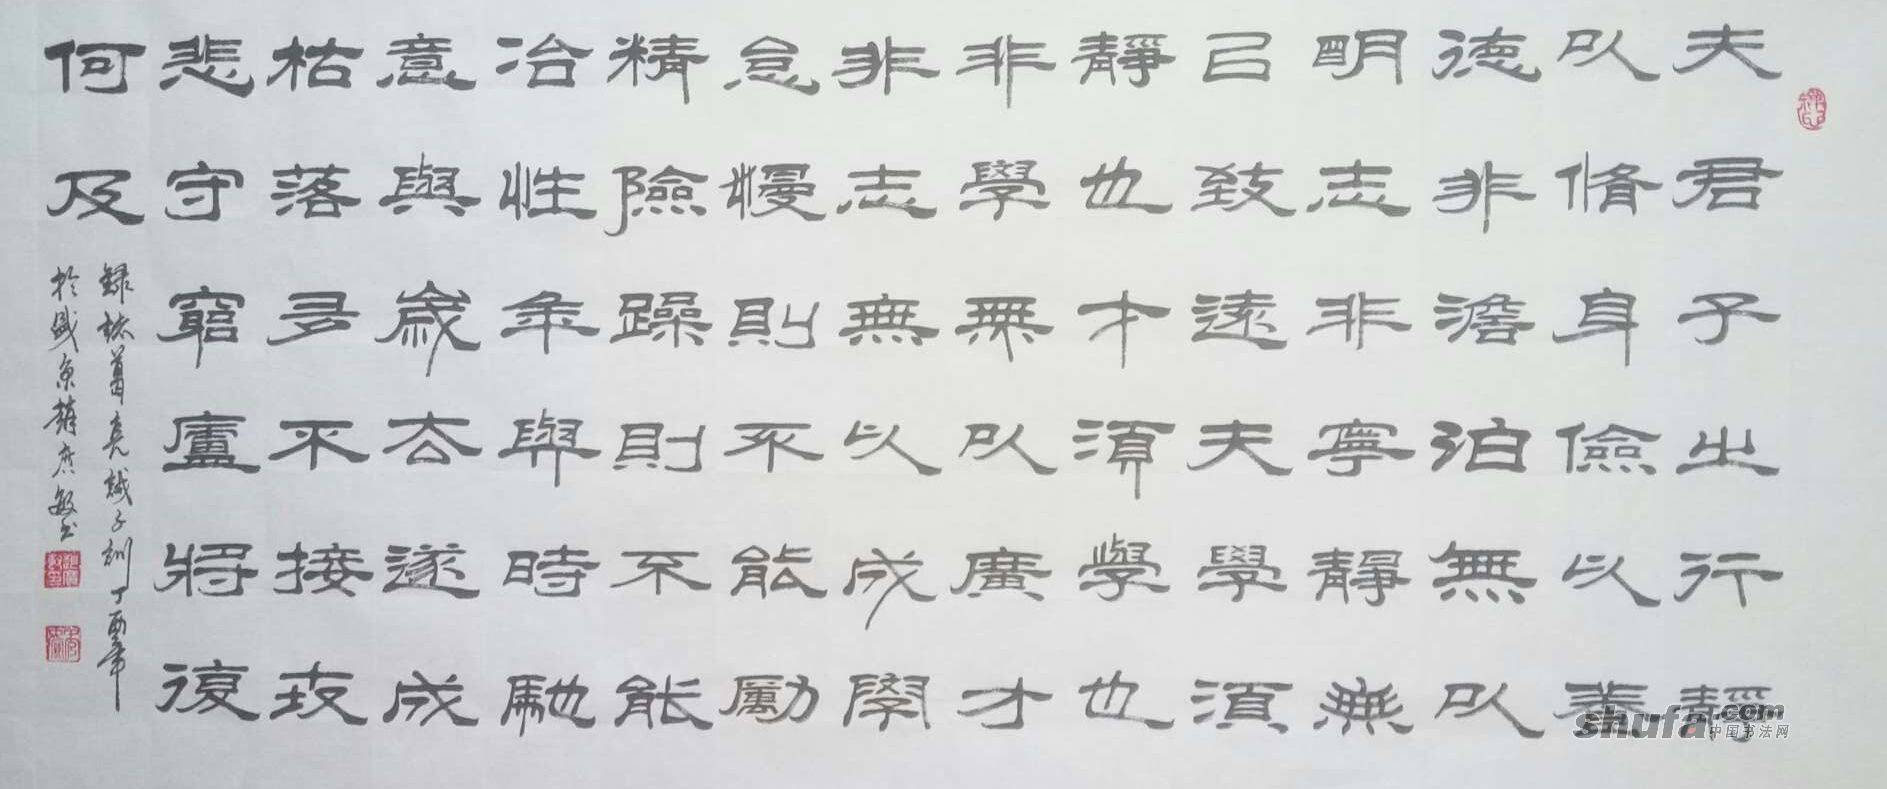 夫君子之行靜
以脩身儉以養
德非澹泊無以
明志非寧靜無
㠯致遠夫學須
靜也才須學也
非學無以廣才
非志無以成學
怠慢則不能勵
精險躁則不能
冶性年與時馳
意與歲去遂成
枯落多不接世
悲守窮廬將復
何及
錄諸葛亮誡子訓丁酉年
於盛京趙广敏书
shufa.com
中国书法网